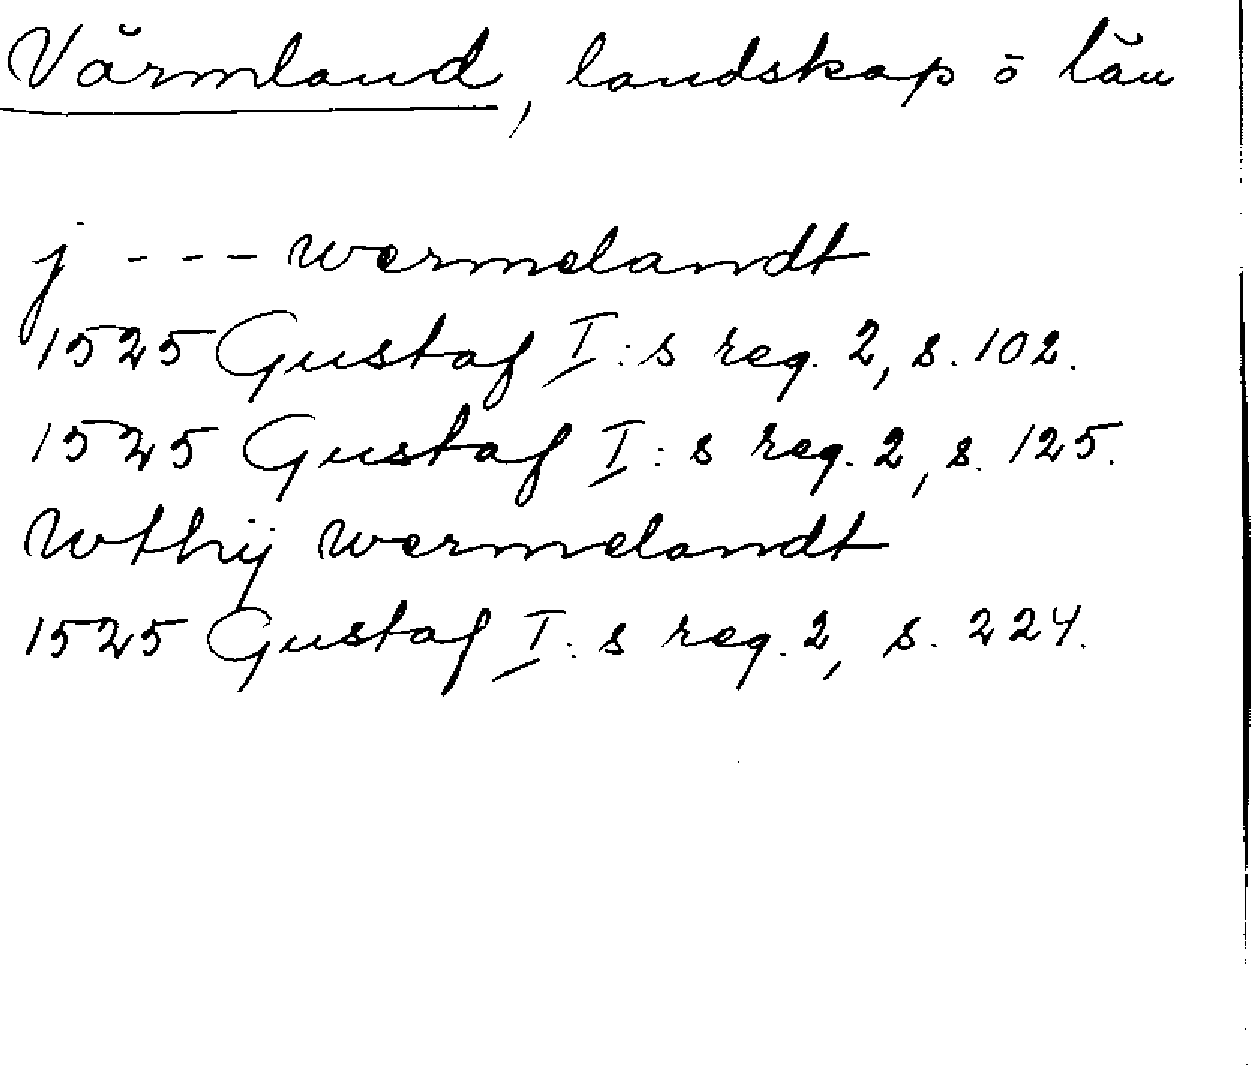 Värmland, landskap o län
j --- wermelandt
1525 Gustaf I:s reg. 2, s. 102.
1525 Gustaf I:s reg. 2, s. 125.
wthij wermelandt
1525 Gustaf I:s reg. 2, s. 224.